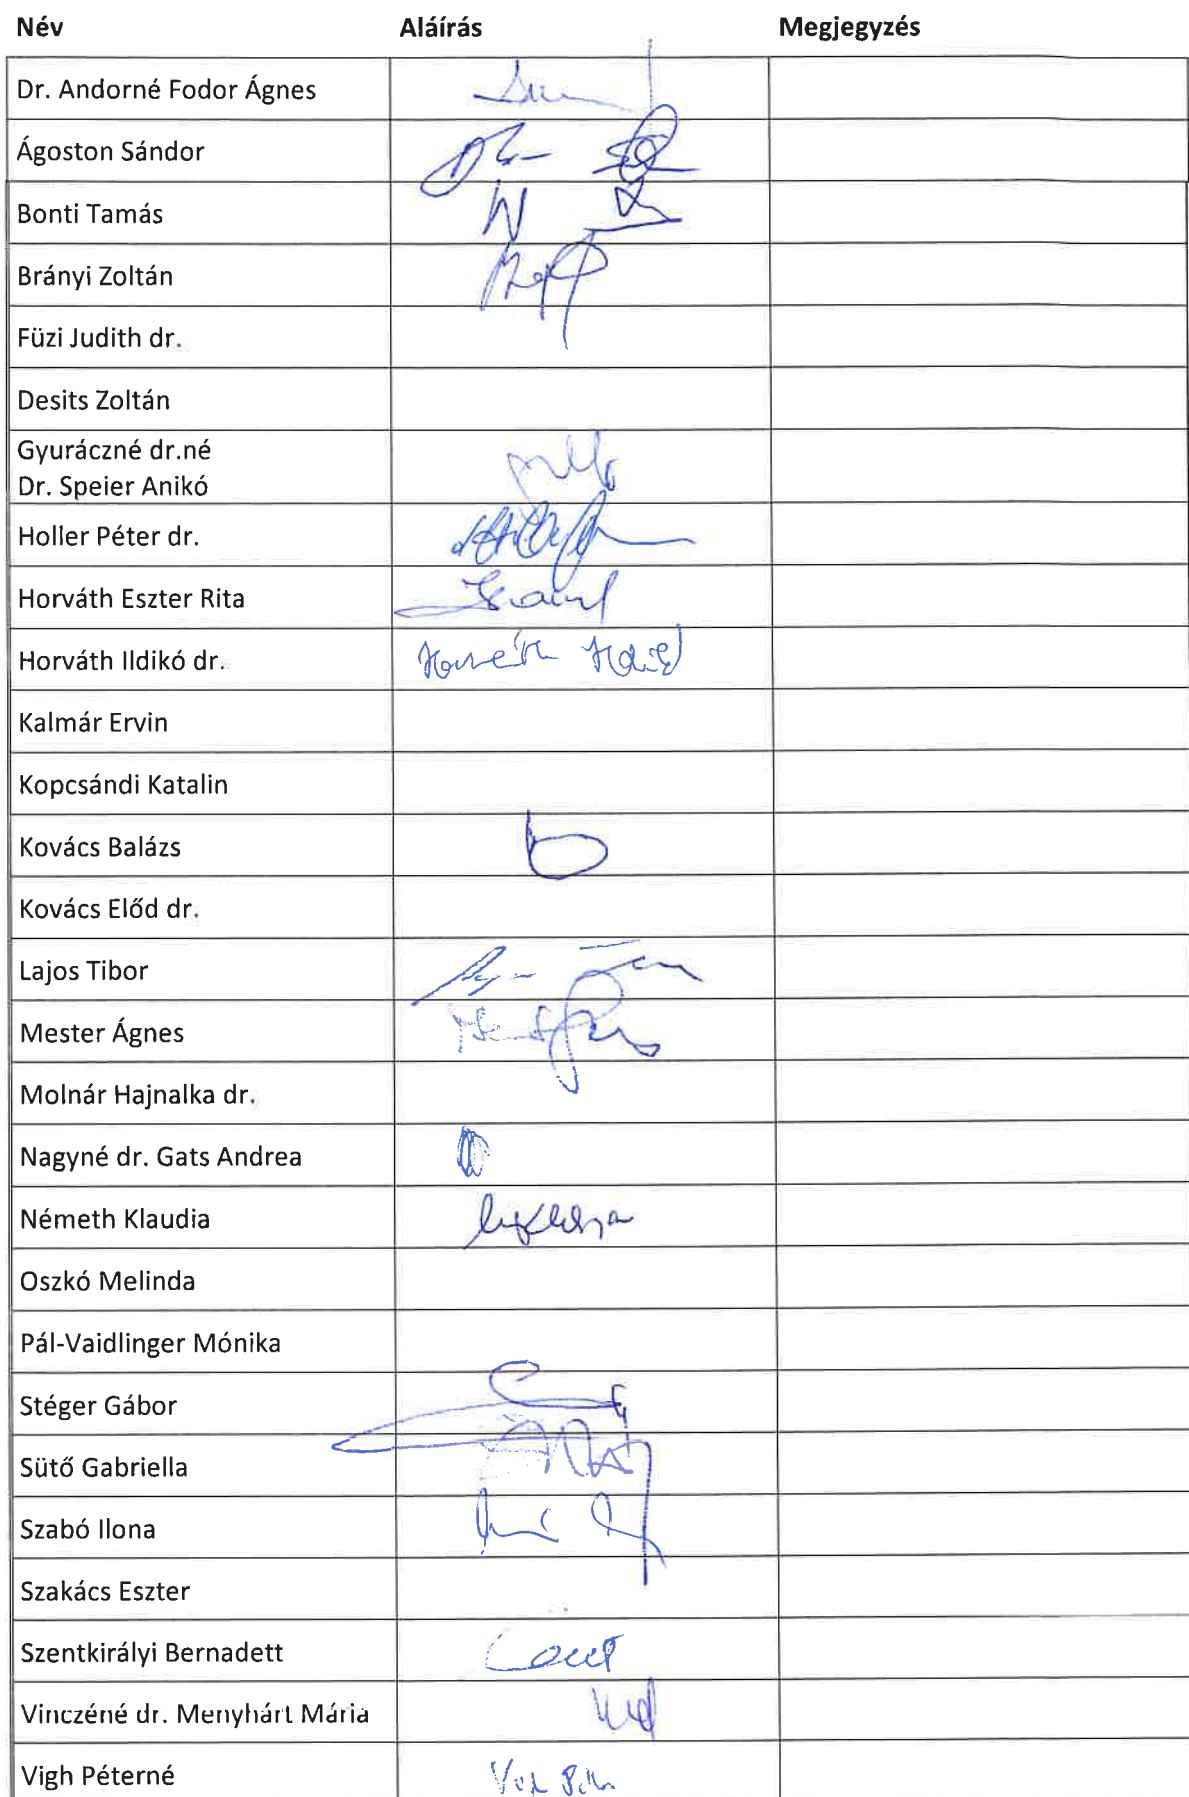 Név Aláírás Megjegyzés
Dr. Andorné Fodor Ágnes
Ágoston Sándor
Bonti Tamás
Brányi Zoltán
Füzi Judith dr.
Desits Zoltán
Gyuráczné dr.né
Dr. Speier Anikó
Holler Péter dr.
Horváth Eszter Rita
Horváth Ildikó dr. Horváth Ildikó
Kalmár Ervin
Kopcsándi Katalin
Kovács Balázs
Kovács Előd dr.
Lajos Tibor
Mester Ágnes
Molnár Hajnalka dr.
Nagyné dr. Gats Andrea
Németh Klaudia
Oszkó Melinda
Pál-Vaidlinger Mónika
Stéger Gábor
Sütő Gabriella
Szabó Ilona
Szakács Eszter
Szentkirályi Bernadett
Vinczéné dr. Menyhárt Mária
Vigh Péterné